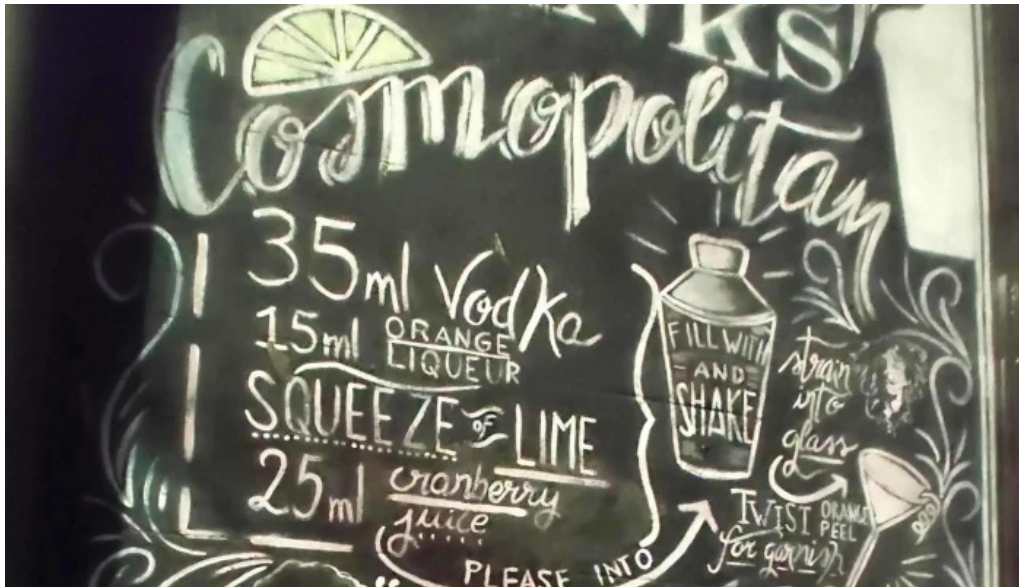 NKS
Cosmopolitan
35ml Vodka
15ml ORANGE LIQUEUR
SQUEEZE of LIME
25ml cranberry juice
PLEASE INTO
FILL WITH
AND
SHAKE
strain
into
glass
TWIST ORANGE PEEL
for garnish